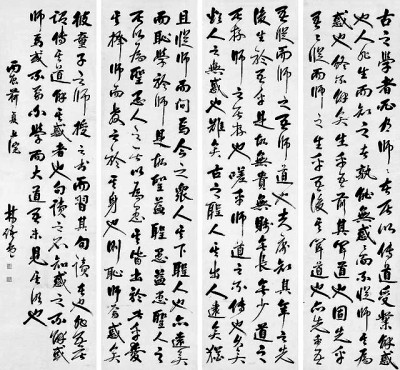 古之學者必有師師者所以傳道受業解惑
也人非生而知之者孰能無惑惑而不從師其為
惑也終不解矣生乎吾前其聞道也固先乎
吾吾從而師之生乎吾後其聞道也亦先乎吾
吾從而師之吾師道也夫庸知其年之先
後生於吾乎是故無貴無賤無長無少道之
所存師之所存也嗟乎師道之不傳也久矣
欲人之無惑也難矣古之聖人其出人也遠矣猶
且從師而問焉今之眾人其下聖人也亦遠矣
而恥學於師是故聖益聖愚益愚聖人之
所以為聖愚人之所以為愚其皆出於此乎愛
其子擇師而教之於其身也則恥師焉惑矣
彼童子之師授之書而習其句讀者非吾所
謂傳其道解其惑者也句讀之不知惑之不解或
師焉或不焉小學而大遺吾未見其明也
丙寅 夏上浣
林